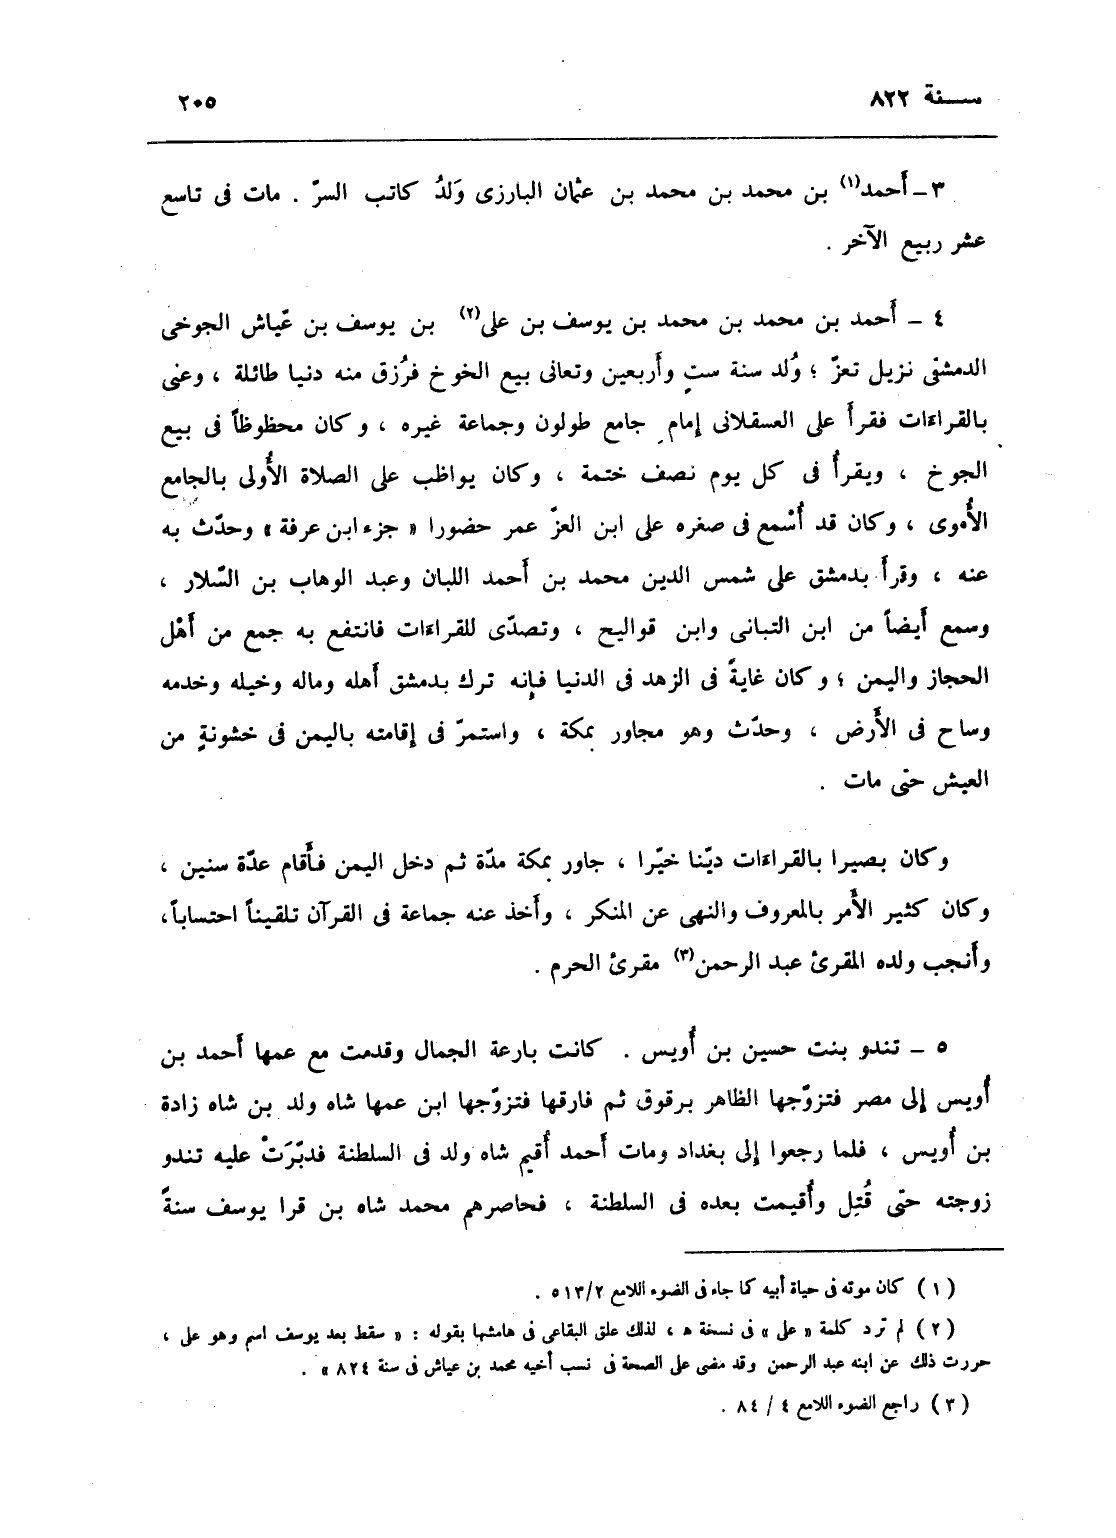 سـنة ٨٢٢
٢٠٥
٣ – أَحمد(١) بن محمد بن محمد بن عثمان البارزى وَلدُ كاتب السرّ . مات فى تاسع
عشر ربيع الآخر .
٤ – أَحمد بن محمد بن محمد بن يوسف بن على(٢) بن يوسف بن عيّاش الجوخى
الدمشقى نزيل تعزّ ؛ وُلد سنة ستٍ وأَربعين وتعانى بيع الخوخ فرُزق منه دنيا طائلة ، وعنى
بالقراءات فقرأَ على العسقلانى إمام جامع طولون وجماعة غيره ، وكان محظوظاً فى بيع
الجوخ ، ويقرأُ فى كل يوم نصف ختمة ، وكان يواظب على الصلاة الأُولى بالجامع
الأُموى ، وكان قد أُسْمع فى صغره على ابن العزّ عمر حضورا « جزء ابن عرفة » وحدّث به
عنه ، وقرأَ بدمشق على شمس الدين محمد بن أَحمد اللبان وعبد الوهاب بن السّلار ،
وسمع أَيضاً من ابن التبانى وابن قواليح ، وتصدّى للقراءات فانتفع به جمع من أَهْل
الحجاز واليمن ؛ وكان غايةً فى الزهد فى الدنيا فإنه ترك بدمشق أَهله وماله وخيله وخدمه
وساح فى الأَرض ، وحدّث وهو مجاور بمكة ، واستمرّ فى إقامته باليمن فى خشونةٍ من
العيش حتى مات .
وكان بصيرا بالقراءات ديّنا خيّرا ، جاور بمكة مدّة ثم دخل اليمن فأَقام عدّة سنين ،
وكان كثير الأَمر بالمعروف والنهى عن المنكر ، وأَخذ عنه جماعة فى القرآن تلقيناً احتساباً،
وأَنجب ولده المقرئ عبد الرحمن(٣) مقرئ الحرم .
٥ – تندو بنت حسين بن أُويس . كانت بارعة الجمال وقدمت مع عمها أَحمد بن
أُويس إلى مصر فتزوّجها الظاهر برقوق ثم فارقها فتزوّجها ابن عمها شاه ولد بن شاه زادة
بن أُويس ، فلما رجعوا إلى بغداد ومات أَحمد أُقيم شاه ولد فى السلطنة فدبّرَتْ عليه تندو
زوجته حتى قُتِل وأُقيمت بعده فى السلطنة ، فحاصرهم محمد شاه بن قرا يوسف سنةً
(١) كان موته فى حياة أبيه كما جاء فى الضوء اللامع ٥١٣/٢ .
(٢) لم ترد كلمة « على » فى نسخة ﻫ ، لذلك علق البقاعى فى هامشها بقوله : « سقط بعد يوسف اسم وهو على ،
حررت ذلك عن ابنه عبد الرحمن وقد مضى على الصحة فى نسب أخيه محمد بن عياش فى سنة ٨٢٤ » .
(٣) راجع الضوء اللامع ٤ / ٨٤ .